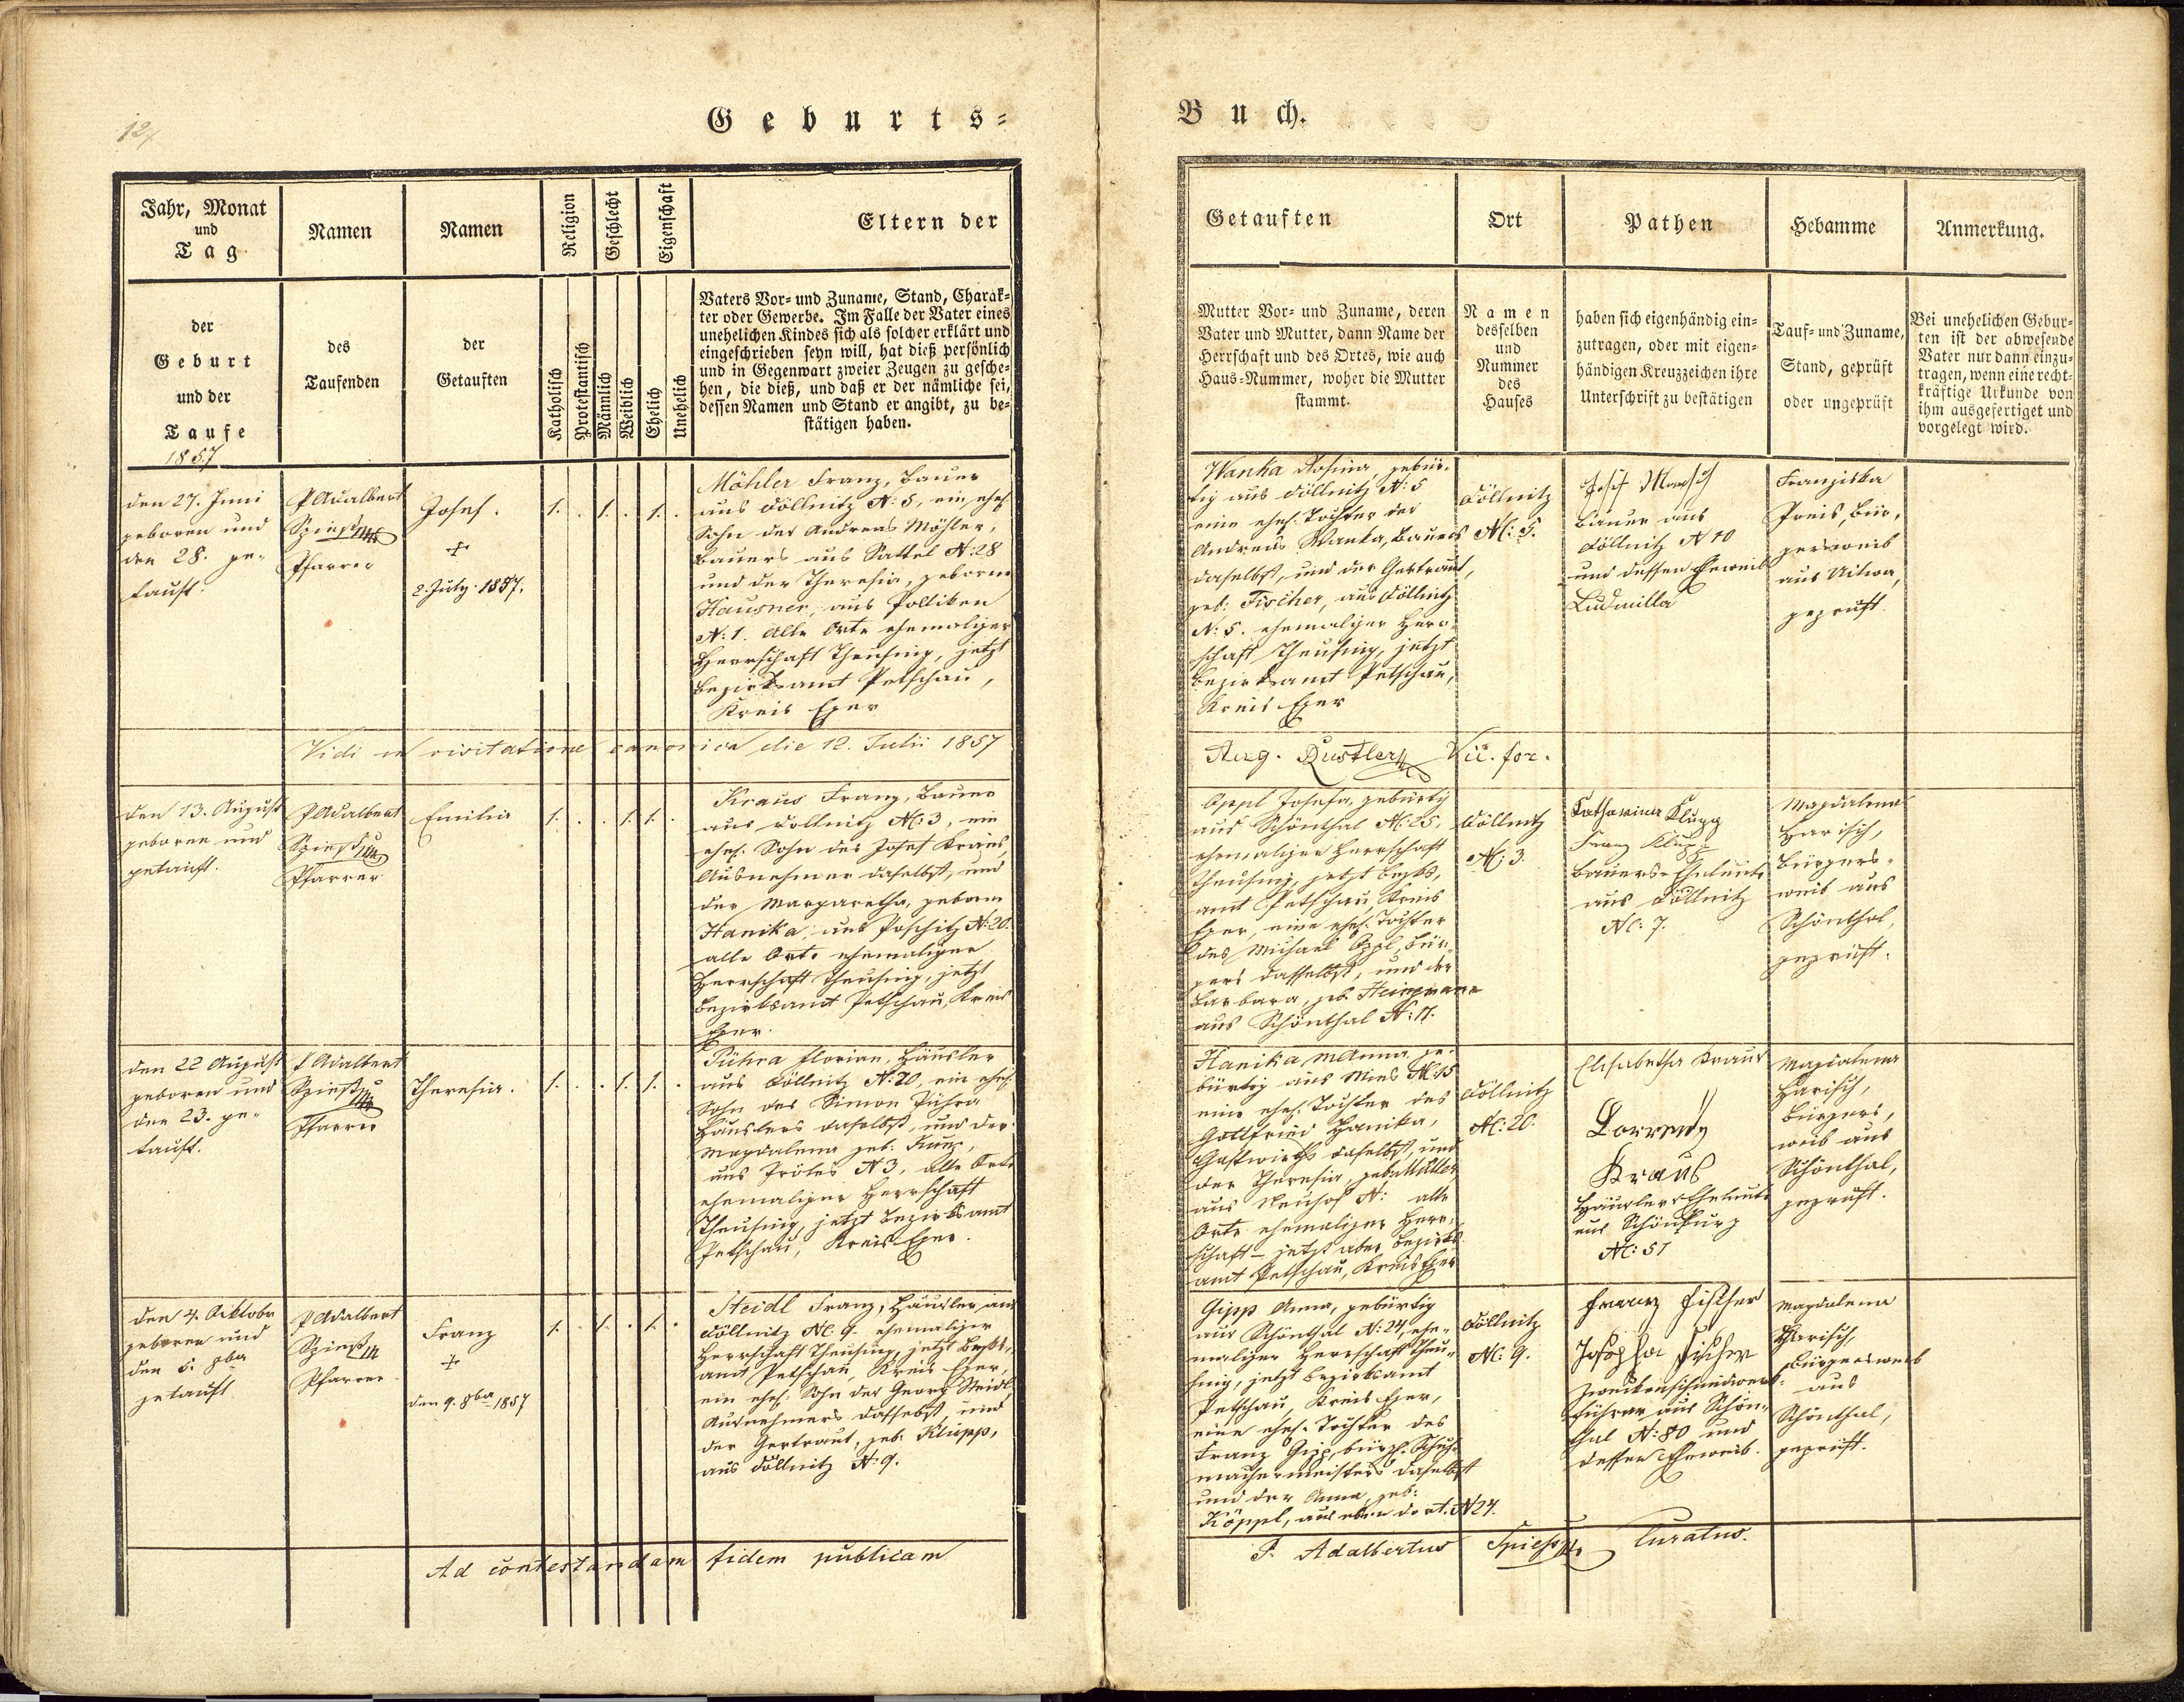 124
Geburts-
Buch.
Jahr, Monat
und
Tag
Namen
Namen
Religion
Geschlecht
Eigenschaft
Eltern der
der
Geburt
und der
Taufe
1857
des
Taufenden
der
Getauften
Katholisch
Protestantisch
Männlich
Weiblich
Ehelich
Unehelich
Vaters Vor- und Zuname, Stand, Charak-
ter oder Gewerbe. Im Falle der Vater eines
unehelichen Kindes sich als solcher erklärt und
eingeschrieben seyn will, hat dieß persönlich
und in Gegenwart zweier Zeugen zu gesche-
hen, die dieß, und daß er der nämliche sei,
dessen Namen und Stand er angibt, zu be-
stätigen haben.
Getauften
Ort
Pathen
Hebamme
Anmerkung.
Mutter Vor- und Zuname, deren
Vater und Mutter, dann Name der
Herrschaft und des Ortes, wie auch
Haus-Nummer, woher die Mutter
stammt.
Namen
desselben
und
Nummer
des
Hauses
haben sich eigenhändig ein-
zutragen, oder mit eigen-
händigen Kreuzzeichen ihre
Unterschrift zu bestätigen
Tauf- und Zuname,
Stand, geprüft
oder ungeprüft
Bei unehelichen Gebur-
ten ist der abwesende
Vater nur dann einzu-
tragen, wenn eine recht-
kräftige Urkunde von
ihm ausgefertiget und
vorgelegt wird.
den 27. Juni
geboren und
den 28. ge-
tauft.
P Adalbert
Spieß
Pfarrer
Josef.
+
2. July 1857.
1. . 1. . 1. .
Möhler Franz, Bauer
aus Döllnitz N: 5, ein ehel.
Sohn des Andreas Möhler,
Bauers aus Sattel N: 28
und der Theresia, geborne
Hausner, aus Polliken
N: 1. Alle Orte ehemaliger
Herrschaft Theusing, jetzt
Bezirksamt Petschau,
Kreis Eger
Wanka Rosina, gebür-
tig aus Döllnitz N: 5
eine ehel. Tochter des
Andreas Wanka, Bauers
daselbst, und der Gertraut,
geb: Fischer, aus Döllnitz
N: 5. ehemaliger Herr-
schaft Theusing, jetzt
Bezirksamt Petschau,
Kreis Eger
Döllnitz
N: 5.
Josef
Bauer aus
Döllnitz N 10
und dessen Eheweib
Ludmilla
Franziska
Preis, Bür-
gersweib
aus Uitwa,
geprüft.
Vidi in visitatione canonica die 12. Julii 1857
Aug. Rustler Vic. for.
den 13. August
geboren und
getauft.
P Adalbert
Spieß
Pfarrer
Emilia
1. . . 1. 1. .
Kraus Franz, Bauer
aus Döllnitz N: 3, ein
ehel. Sohn des Josef Kraus,
Ausnehmer daselbst, und
der Margaretha, geborne
Hanika, aus Poschitz N: 20.
alle Orte ehemaliger
Herrschaft Theusing, jetzt
Bezirksamt Petschau, Kreis
Eger.
Oppl Josefa, gebürtig
aus Schönthal N: 25,
ehemaliger Herrschaft
Theusing, jetzt Bezks.
amt Petschau, Kreis
Eger, eine ehel. Tochter
des Michael Oppl, Bür-
gers daselbst, und der
Barbara, geb. Heinzmann
aus Schönthal N: 17.
Döllnitz
N: 3.
Katharina Klupp
Franz Klupp
Bauers-Eheleute
aus Döllnitz
N: 7.
Magdalena
Harisch,
Bürgers-
weib aus
Schönthal,
geprüft.
den 22 August
geboren und
den 23. ge-
tauft.
P Adalbert
Spieß
Pfarrer
Theresia.
1. . . 1. 1. .
Pühra Florian, Häusler
aus Döllnitz N: 20, ein ehel.
Sohn des Simon Pühra
Häuslers daselbst, und der
Magdalena geb.
aus Pröles N 3, alle Orte
ehemaliger Herrschaft
Theusing, jetzt Bezirksamt
Petschau, Kreis Eger.
Hanika M Anna, ge-
bürtig aus Mies N: 15
eine ehel. Tochter des
Gottfried Hanika,
Gastwirths daselbst, und
der Theresia, geb. Müller
aus Neuhof N: alle
Orte ehemaliger Herr-
schaft - jetzt aber Bezirks-
amt Petschau, Kreis Eger
Döllnitz
N: 20.
Elisabetha Kraus
Lorrenz
Kraus
Häusler Eheleute
aus
N: 51
Magdalena
Harisch,
Bürgers,
weib aus
Schönthal,
geprüft.
den 4. Oktober
geboren und
den 5. 8ber
getauft
P Adalbert
Spieß
Pfarrer
Franz
+
den 9. 8ber 1857
1. . 1. . 1. .
Steidl Franz, Häusler aus
Döllnitz N: 9. ehemaliger
Herrschaft Theusing, jetzt Bezks.
amt Petschau, Kreis Eger,
ein ehel. Sohn des Georg Steidl,
Ausnehmers daselbst, und
der Gertraut, geb. Klupp,
aus Döllnitz N: 9.
Gipp Anna, gebürtig
aus Schönthal N: 24, ehe-
maliger Herrschaft Theu-
sing, jetzt Bezirksamt
Petschau, Kreis Eger,
eine ehel. Tochter des
Franz Gipp, bürgl. Schuh-
machermeisters daselbst
und der Anna, geb:
Köppl, aus eben dort. N 24.
Döllnitz
N: 9.
Franz Fischer
Josepha Fischer
führer aus Schön-
thal N: 80 und
dessen Eheweib.
Magdalena
Harisch,
Bürgersweib
aus
Schönthal,
geprüft.
Ad contestandam fidem publicam
P. Adalbertus Spiess Curatus.